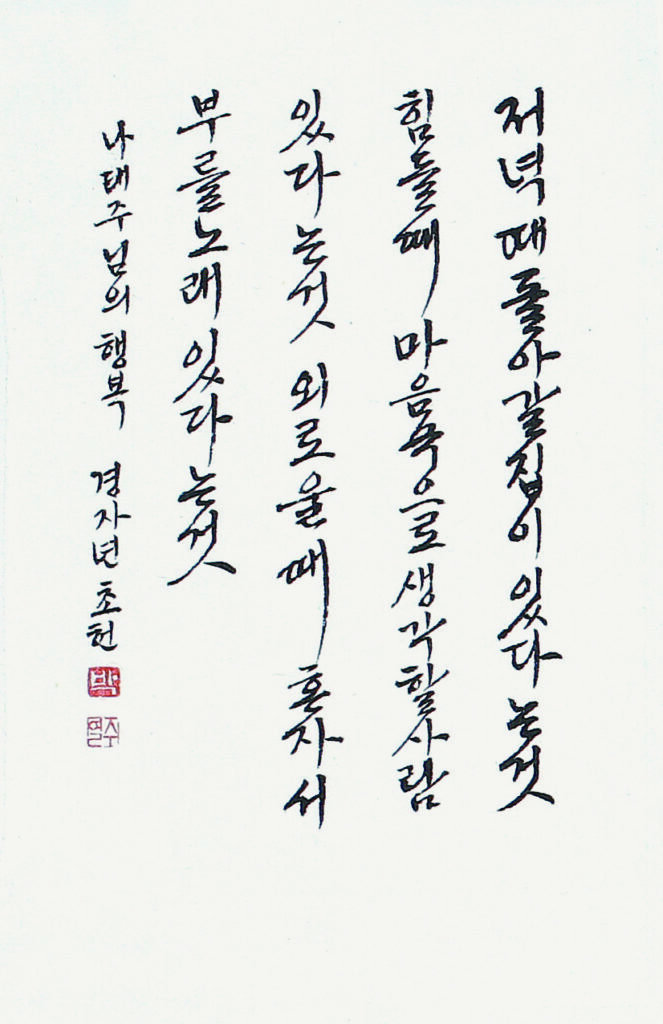 저녁때 돌아갈 집이 있다는 것
힘들 때 마음 쪽으로 생각할 사람
있다는 것 외로울 때 혼자서
부를 노래 있다는 것
나태주님의 행복 경자년 초헌
박